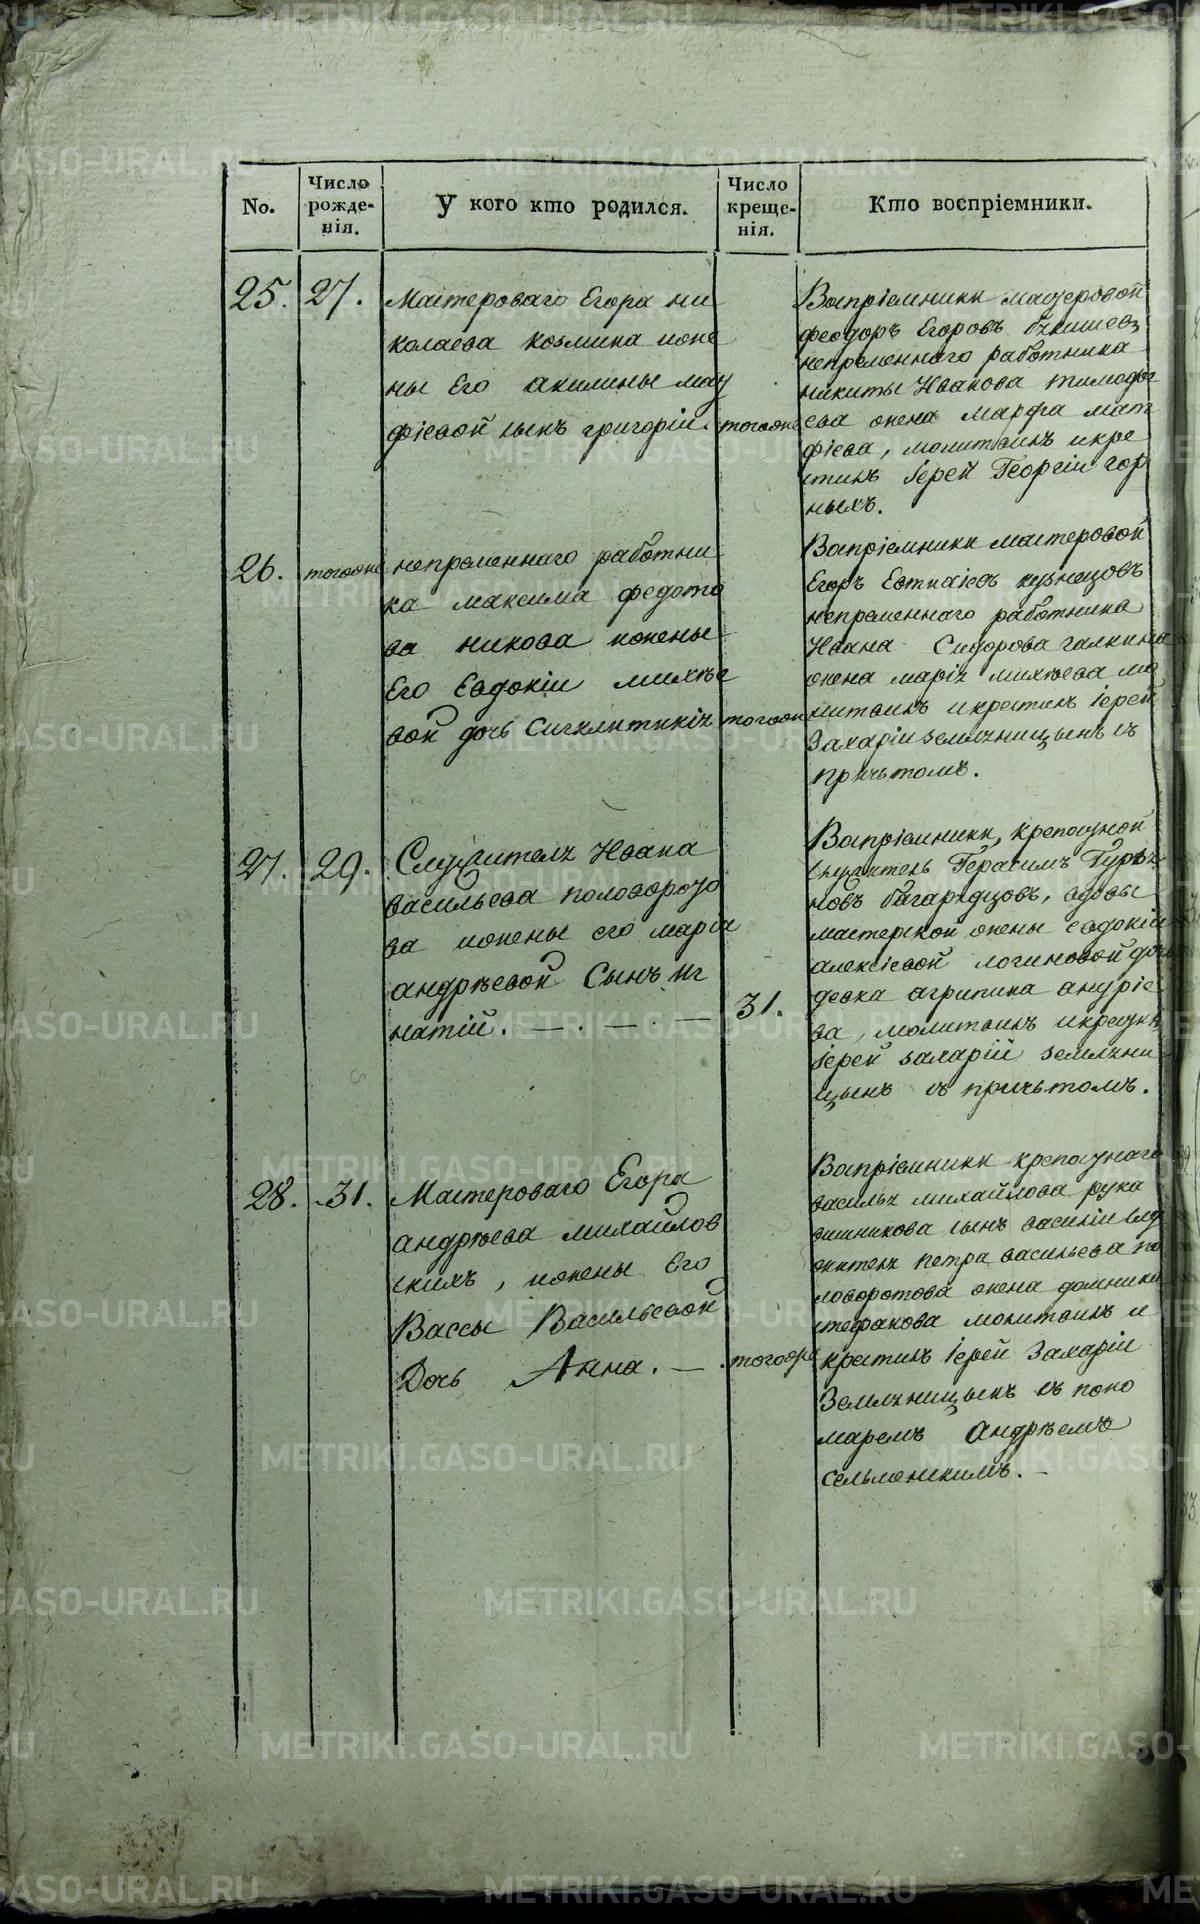 No.
Число рожде-нія.
У кого кто родился.
Число креще-нія.
Кто воспріемники.
25.
27.
Мастероваго Егора ни
колаева козмина ижене
ны Его акилины мат
фіевой сынъ григорій.
тогоже
Вапріемники мастеровой
феодоръ Егоровъ
непременнаго работника
никиты Иванова тимофе
ева жена марфа мат
фіева, молитвилъ икре
стилъ іерей Георгій гор
ныхъ.
26.
тогоже
непременнаго работни
ка максима федото
ва никова ижены
Его Евдокіи михѣе
вой дочь Сигклитикія
тогоже
Вапріемники мастеровой
Егоръ Евтиѳіевъ кузнецовъ
непременнаго работника
Ивана Сидорова галкина
жена марія михѣева мо
литвилъ икрестилъ іерей
Захарій земляницынъ съ
причьтомъ.
27.
29.
Служителя Ивана
васильева половорото
ва ижены его маріи
андрѣевой Сынъ иг
натій.
31.
Вапріемники, крепостной
служитель Герасимъ Гурья
новъ багарядцовъ, вдовы
мастерской жены евдокіи
алексіевой логиновой дочь
девка агрипина андріе
ва, молитвилъ икрестилъ
іерей захарій земляни
цынъ съ причьтомъ.
28.
31.
Мастероваго Егора
андрѣева михайлов
скихъ, ижены Его
Вассы Васильевой
Дочь Анна.
тогоже
Вапріемники крепостнаго
василья михайлова рука
вишникова сынъ василій слу
жителя петра васильева по
ловоротова жена домника
стефанова молитвилъ и
крестилъ іерей Захарій
Землянницынъ съ поно
маремъ Андрѣемъ
сельменскимъ.
METRIKI.GASO-URAL.RU